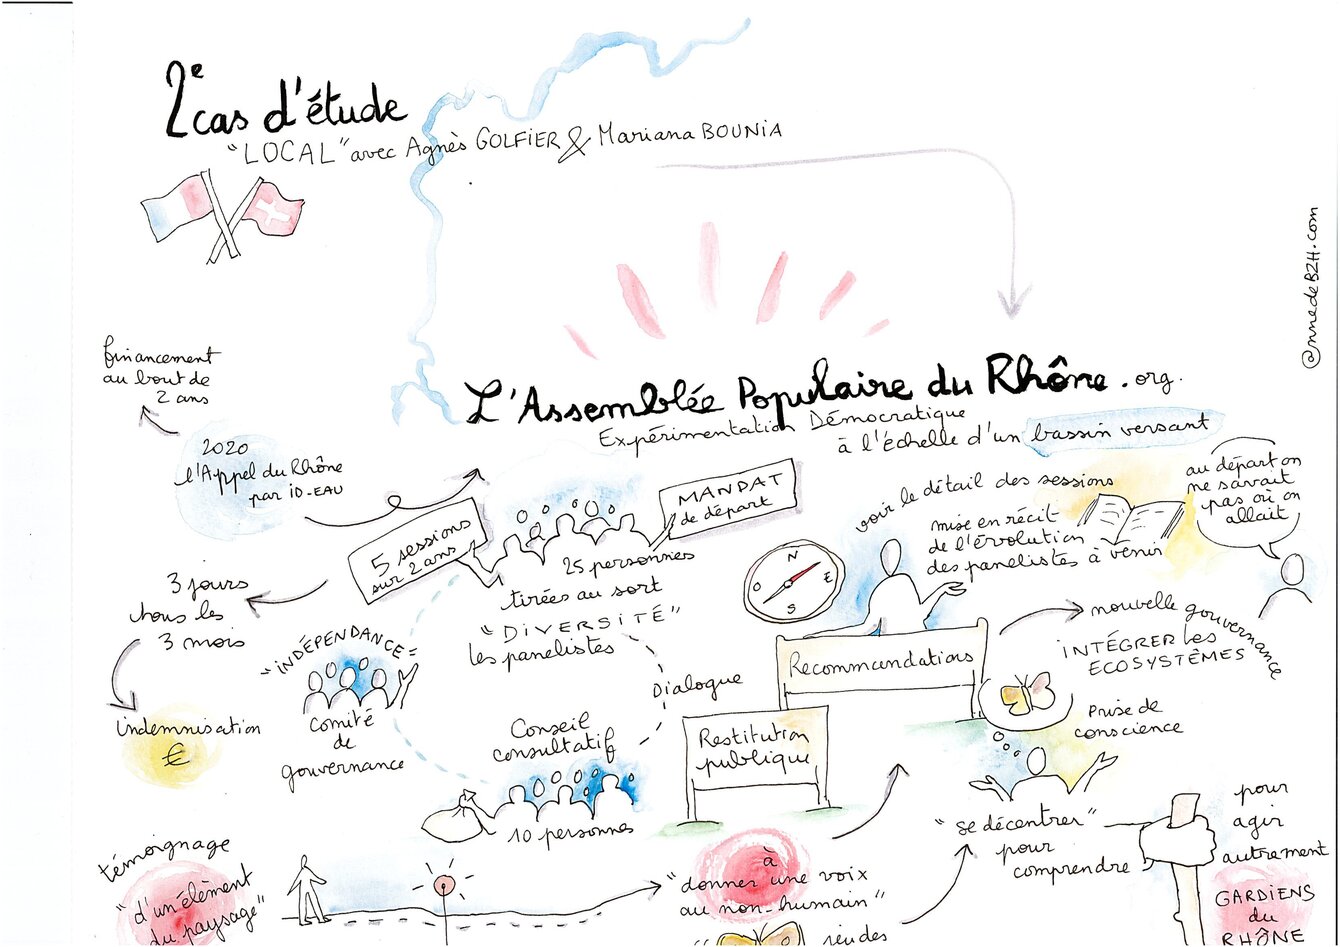 2e cas d'étude
"LOCAL" avec Agnès GOLFIER & Mariana BOUNIA
@nnedeBZH.com
L'Assemblée Populaire du Rhône.org.
Expérimentation Démocratique
à l'échelle d'un bassin versant
financement
au bout de
2 ans
2020
l'Appel du Rhône
par iD-EAU
5 sessions
sur 2 ans
MANDAT
de départ
25 personnes
tirées au sort
"DIVERSITÉ"
les panelistes
3 jours
tous les
3 mois
indemnisation
€
"INDÉPENDANCE"
Comité
de
gouvernance
Dialogue
Conseil
consultatif
10 personnes
voir le détail des sessions
mise en récit
de l'évolution
des panelistes à venir
au départ on
ne savait
pas où on
allait
N
E
S
O
Recommandations
Restitution
publique
nouvelle gouvernance
INTÉGRER les
ECOSYSTÈMES
Prise de
conscience
"se décentrer"
pour
comprendre
pour
agir
autrement
GARDIENS
du
RHÔNE
témoignage
"d'un élément
du paysage"
à
"donner une voix
au non-humain"